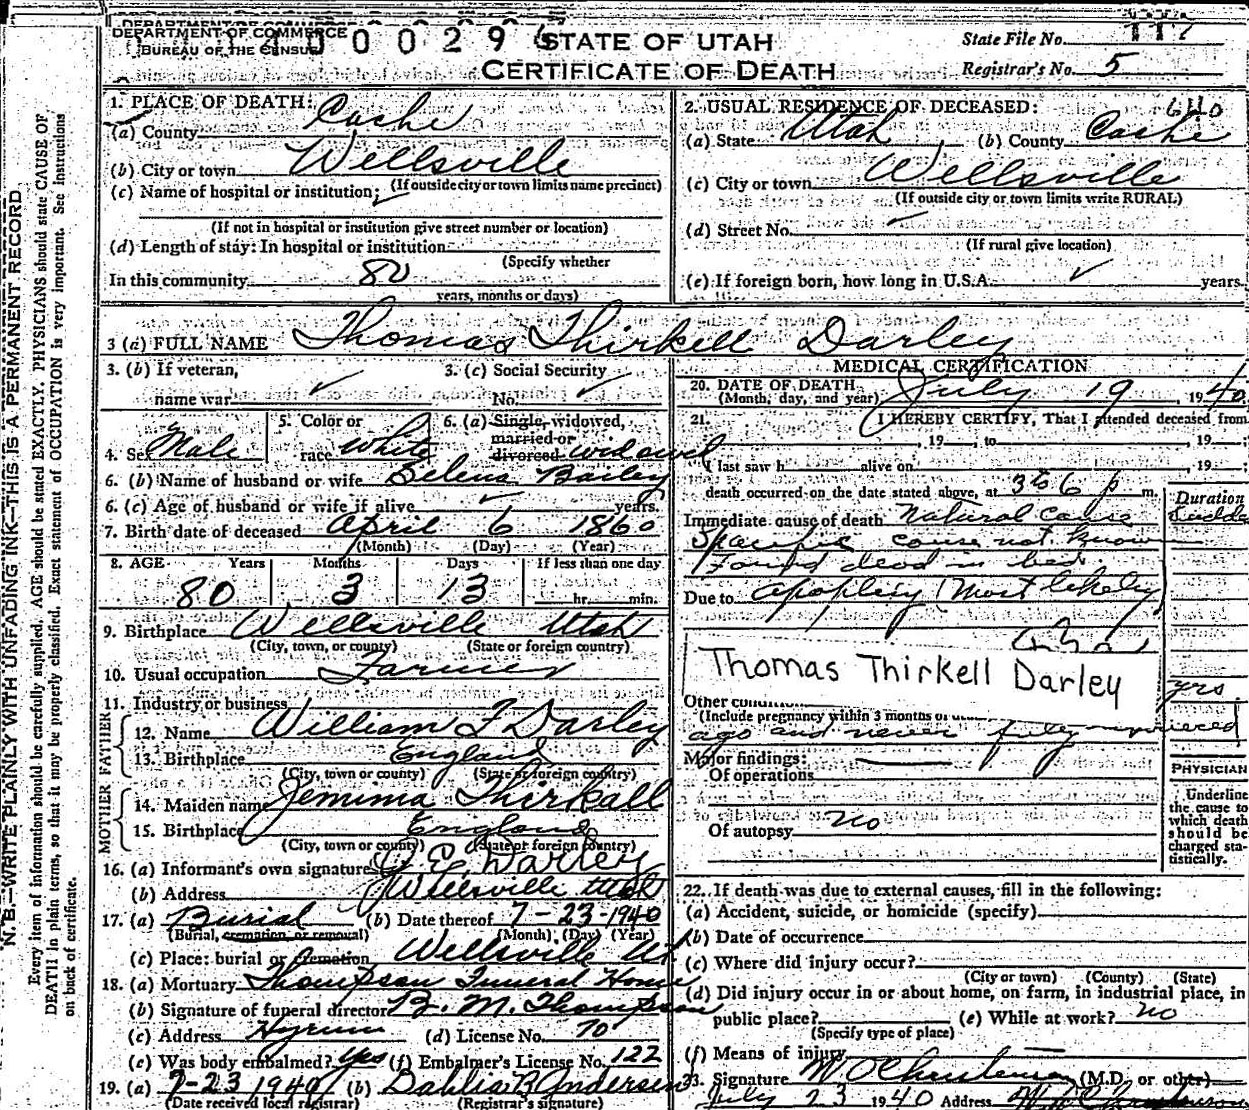 DEPARTMENT OF COMMERCE
BUREAU OF THE CENSUS
0 0 0 2 9
STATE OF UTAH
CERTIFICATE OF DEATH
State File No.
Registrar's No. 5
N. B.—WRITE PLAINLY WITH UNFADING INK—THIS IS A PERMANENT RECORD.
Every item of information should be carefully supplied. AGE should be stated EXACTLY. PHYSICIANS should state CAUSE OF
DEATH in plain terms, so that it may be properly classified. Exact statement of OCCUPATION is very important. See instructions
on back of certificate.
1. PLACE OF DEATH:
(a) County Cache
(b) City or town Wellsville
(If outside city or town limits name precinct)
(c) Name of hospital or institution;
(If not in hospital or institution give street number or location)
(d) Length of stay: In hospital or institution
(Specify whether
In this community 80
years, months or days)
2. USUAL RESIDENCE OF DECEASED: 640
(a) State Utah (b) County Cache
(c) City or town Wellsville
(If outside city or town limits write RURAL)
(d) Street No.
(If rural give location)
(e) If foreign born, how long in U.S.A. years.
3 (a) FULL NAME Thomas Thirkell Darley
3. (b) If veteran,
name war
3. (c) Social Security
No.
4. Sex Male
5. Color or
race White
6. (a) Single, widowed,
married or
divorced widowed
6. (b) Name of husband or wife Selena Bailey
6. (c) Age of husband or wife if alive years.
7. Birth date of deceased April 6 1860
(Month) (Day) (Year)
8. AGE Years Months Days If less than one day
80 3 13 hr. min.
9. Birthplace Wellsville Utah
(City, town, or county) (State or foreign country)
10. Usual occupation Farmer
11. Industry or business
FATHER
12. Name William F Darley
13. Birthplace England
(City, town or county) (State or foreign country)
MOTHER
14. Maiden name Jemima Thirkall
15. Birthplace England
(City, town or county) (State or foreign country)
16. (a) Informant's own signature Darley
(b) Address Wellsville Utah
17. (a) Burial (b) Date thereof 7-23-1940
(Burial, cremation, or removal) (Month) (Day) (Year)
(c) Place: burial or cremation Wellsville Ut
18. (a) Mortuary Thompson Funeral Home
(b) Signature of funeral director B. M. Thompson
(c) Address Hyrum (d) License No. 70
(e) Was body embalmed? Yes (f) Embalmer's License No. 122
19. (a) 7-23 1940 (b) Dahlia R Andersen
(Date received local registrar) (Registrar's signature)
MEDICAL CERTIFICATION
20. DATE OF DEATH
(Month, day, and year) July 19, 1940
21. I HEREBY CERTIFY, That I attended deceased from
, 19 , to , 19 ;
I last saw h alive on , 19 ;
death occurred on the date stated above, at p m.
Duration
Immediate cause of death Natural Cause
Specific cause not known
Found dead in bed
Due to apoplexy (Most likely)
Thomas Thirkell Darley
yrs.
Other
(Include pregnancy within 3 months of
ago and never fully
Major findings:
Of operations
Of autopsy no
PHYSICIAN
Underline
the cause to
which death
should be
charged sta-
tistically.
22. If death was due to external causes, fill in the following:
(a) Accident, suicide, or homicide (specify)
(b) Date of occurrence
(c) Where did injury occur?
(City or town) (County) (State)
(d) Did injury occur in or about home, on farm, in industrial place, in
public place? (e) While at work? no
(Specify type of place)
(f) Means of injury
23. Signature (M.D. or other)
July 23 1940 Address